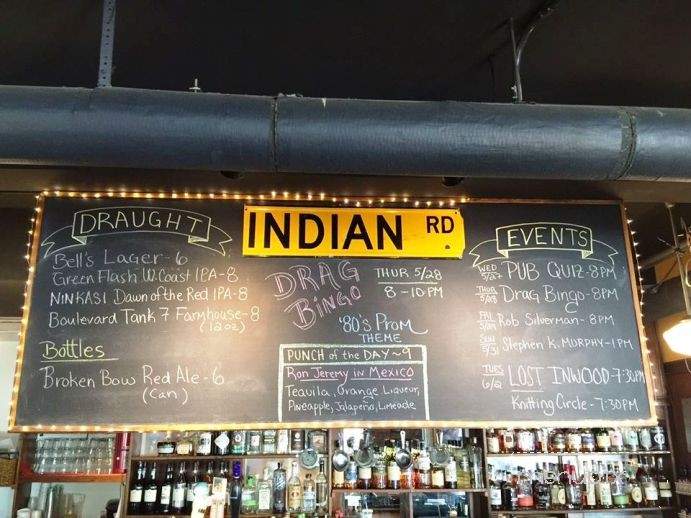 DRAUGHT
Bell's Lager-6
Green Flash W.Coast IPA-8
NINKASI Dawn of the Red IPA-8
Boulevard Tank 7 Farmhouse-8
(12oz)
Bottles
Broken Bow Red Ale-6
(can)
INDIAN RD
DRAG
BINGO
THUR 5/28
8-10PM
'80's Prom
THEME
PUNCH of the DAY~9
Ron Jeremy in MEXICO
Tequila, Orange Liqueur,
Pineapple, Jalapeño, Limeade
EVENTS
WED 5/27 PUB QUIZ-8PM
THUR 5/28 Drag Bingo-8PM
FRI 5/29 Rob Silverman-8PM
SUN 5/31 Stephen K. MURPHY-1PM
TUES 6/2 LOST INWOOD-7:30PM
Knitting Circle-7:30PM